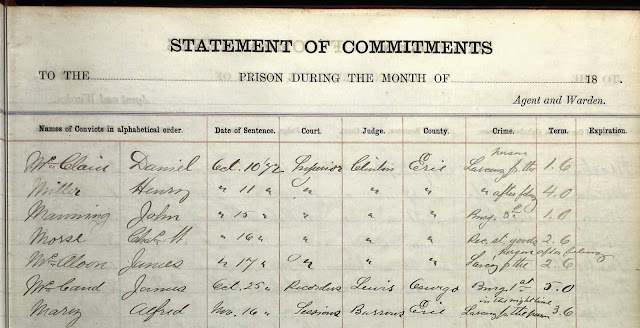 STATEMENT OF COMMITMENTS
TO THE PRISON DURING THE MONTH OF 18 .
Agent and Warden.
Names of Convicts in alphabetical order. Date of Sentence. Court. Judge. County. Crime. Term. Expiration.
person
McClair Daniel Oct. 10/72 Superior Clinton Erie Larceny fr the 1.6
Miller Henry " 11 " " " " " after felony 4.0
Manning John " 15 " " " " Burg. 3d 1.0
Morse Chas. H. " 16 " " " " Rec. st. goods 2.6
person after felony
McAloon James " 17 " " " " Larceny fr the 2.6
McCand James Oct. 25 " Recorders Lewis Oswego Burg. 1st 5.0
in the night time
Alfred Nov. 16 " Sessions Barrows Erie Larceny fr the person 3.6